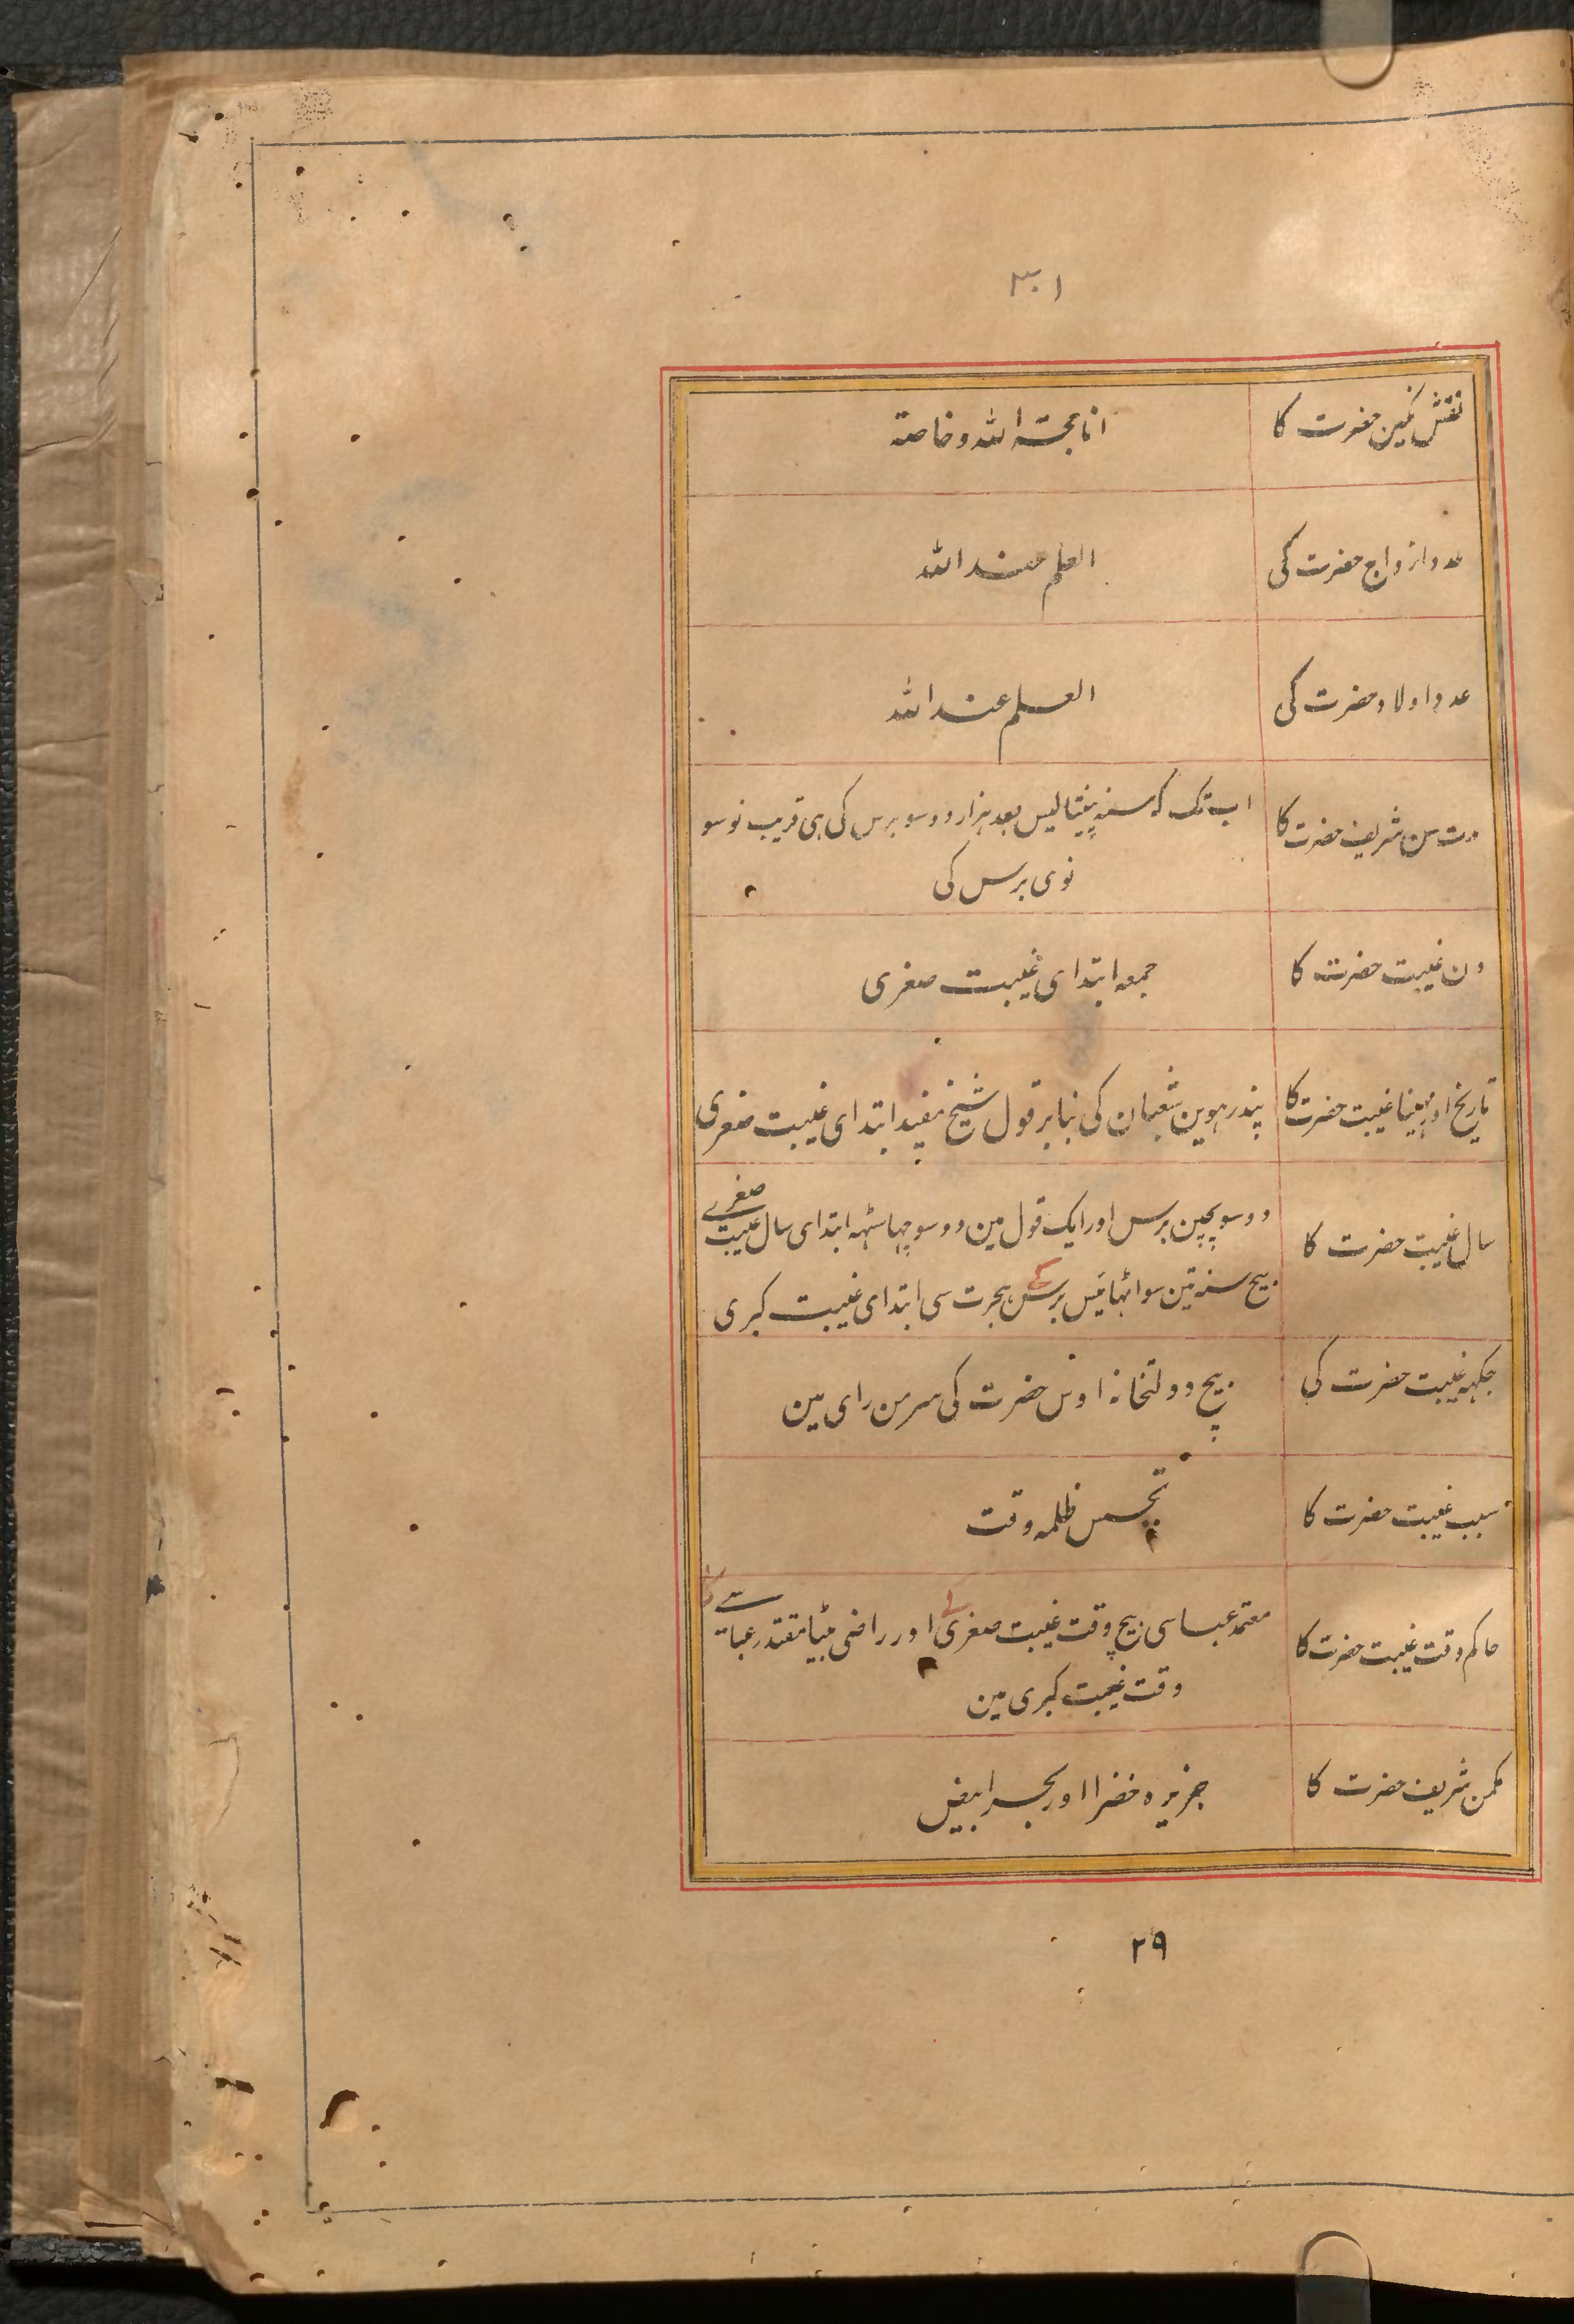 ۳۰۱
نقش نگین حضرت کا
انا حجتہ اللہ وخاصتہ
عدد ازواج حضرت کی
العلم عند اللہ
عدد اولاد حضرت کی
العلم عند اللہ
مدت سن شریف حضرت کا
اب تک کہ سنہ پینتالیس بعد ہزار دو سو برس کی ہی قریب نو سو
نوی برس کی
دن غیبت حضرت کا
جمعہ ابتدای غیبت صغری
تاریخ اور مہینا غیبت حضرت کا
پندرہوین شعبان کی بنا بر قول شیخ مفید ابتدای غیبت صغری
سال غیبت حضرت کا
دو سو پچپن برس اور ایک قول مین دو سو چہاسٹہہ ابتدای سال غیبت صغرے
بیچ سنہ تین سو اٹہائیس برس کے ہجرت سی ابتدای غیبت کبری
جگہہ غیبت حضرت کی
بیچ دولتخانہ اوس حضرت کی سر من رای مین
سبب غیبت حضرت کا
تجسس ظلمہ وقت
حاکم وقت غیبت حضرت کا
معتمد عباسی بیچ وقت غیبت صغری کے اور راضی بیٹا مقتدر عباسے
وقت غیبت کبری مین
مکمن شریف حضرت کا
جزیرہ خضرا اور بحر ابیض
۲۹